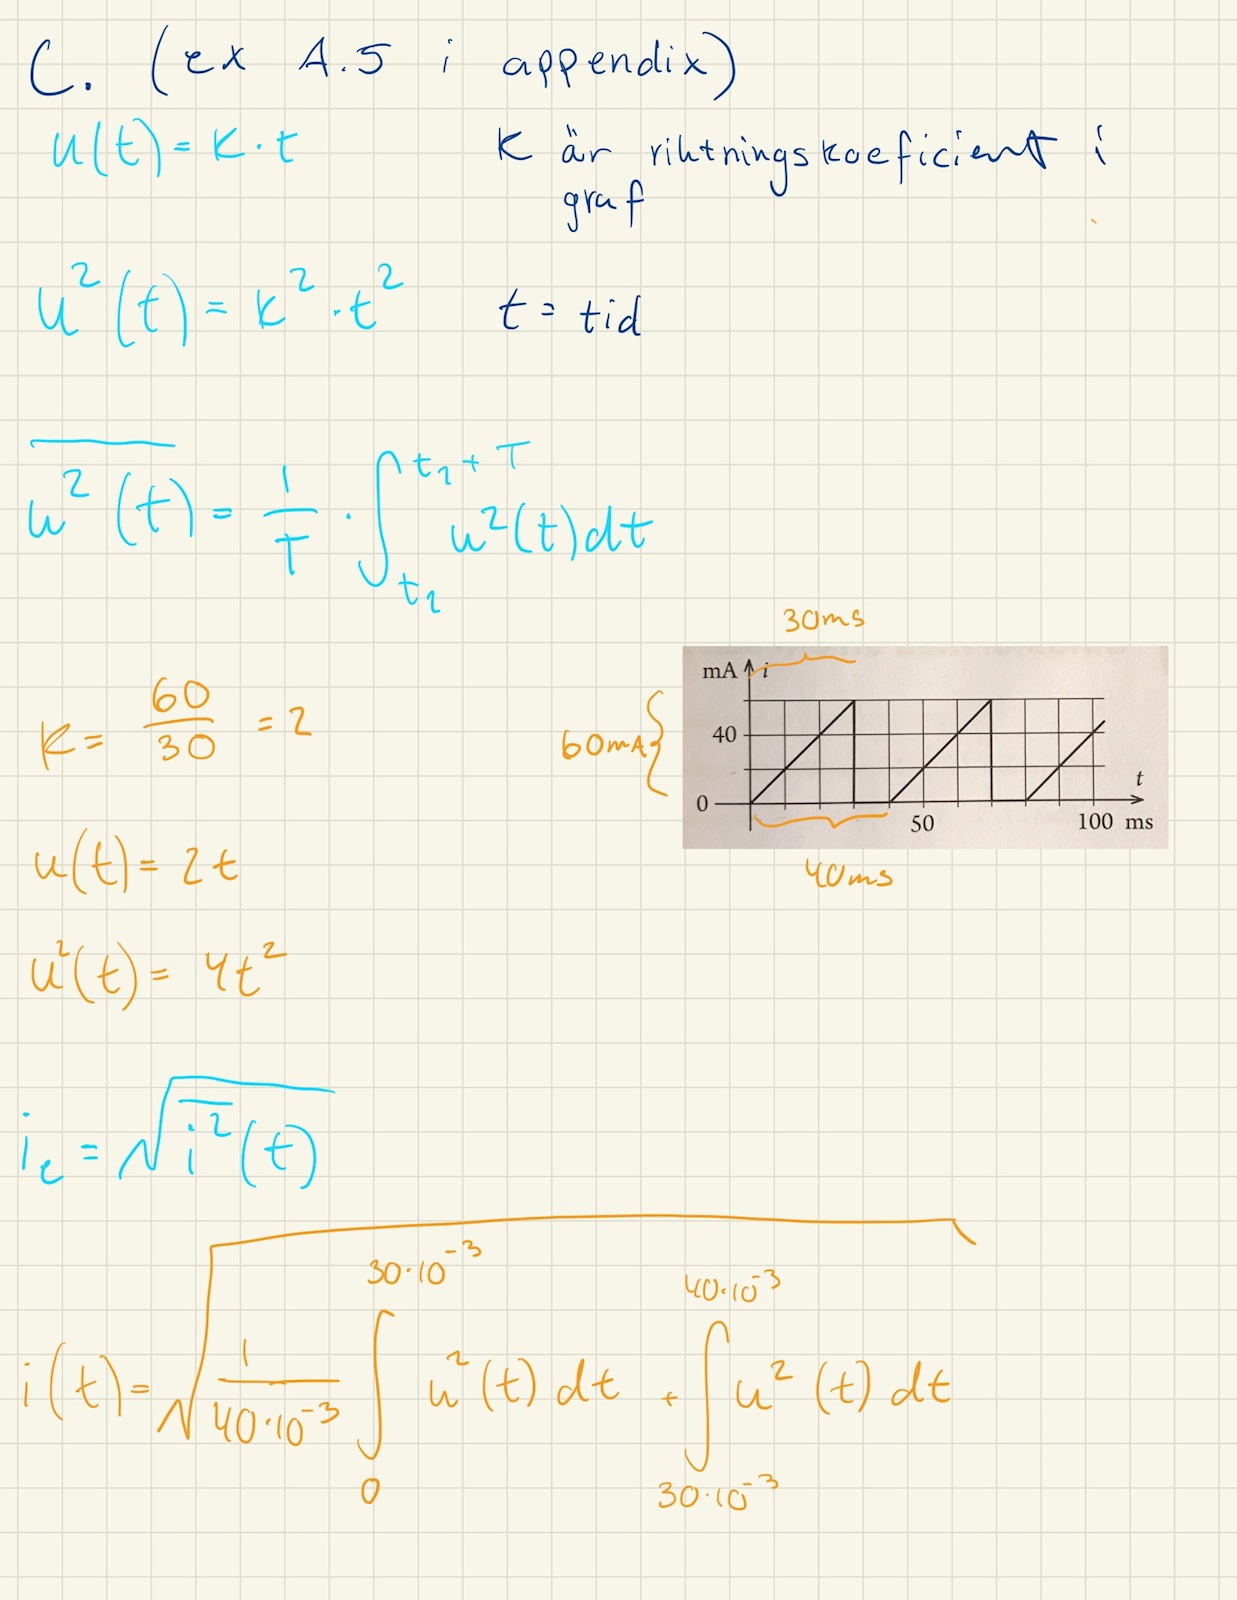 C. (ex A.5 i appendix)
u(t) = K · t
K är rihtningskoeficient i
graf
u²(t) = K² · t²
t = tid
u²(t) = 1/T · ∫ t₂ + T t₂ u²(t) dt
30ms
mA i
K = 60/30 = 2
60mA
40
0
t
50
100 ms
40ms
u(t) = 2t
u²(t) = 4t²
iₑ = √i²(t)
i(t) = √ 1/40·10⁻³ ∫ 30·10⁻³ 0 u²(t) dt + ∫ 40·10⁻³ 30·10⁻³ u²(t) dt